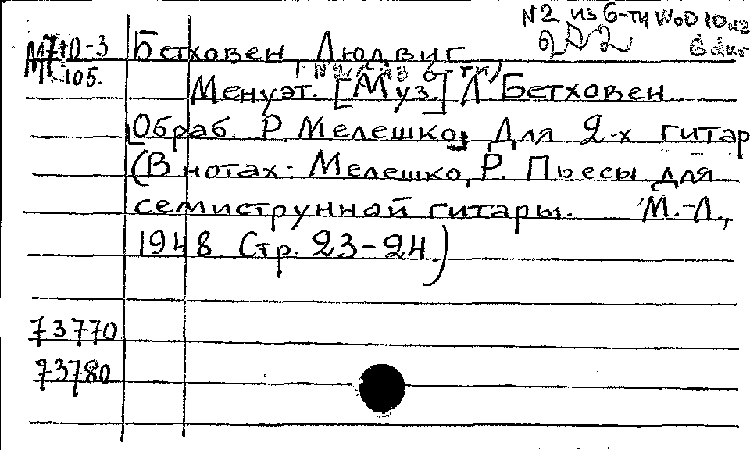 №2 из 6-ти WoO 10 из
М 710-3
105.
Бетховен, Людвиг
(№2 из 6-ти)
Менуэт. [Муз.] Л. Бетховен
Обраб. Р. Мелешко, Для 2-х гитар
(В нотах: Мелешко, Р. Пьесы для
семиструнной гитары. М.-Л.,
1948 Стр. 23-24.)
73770
73780